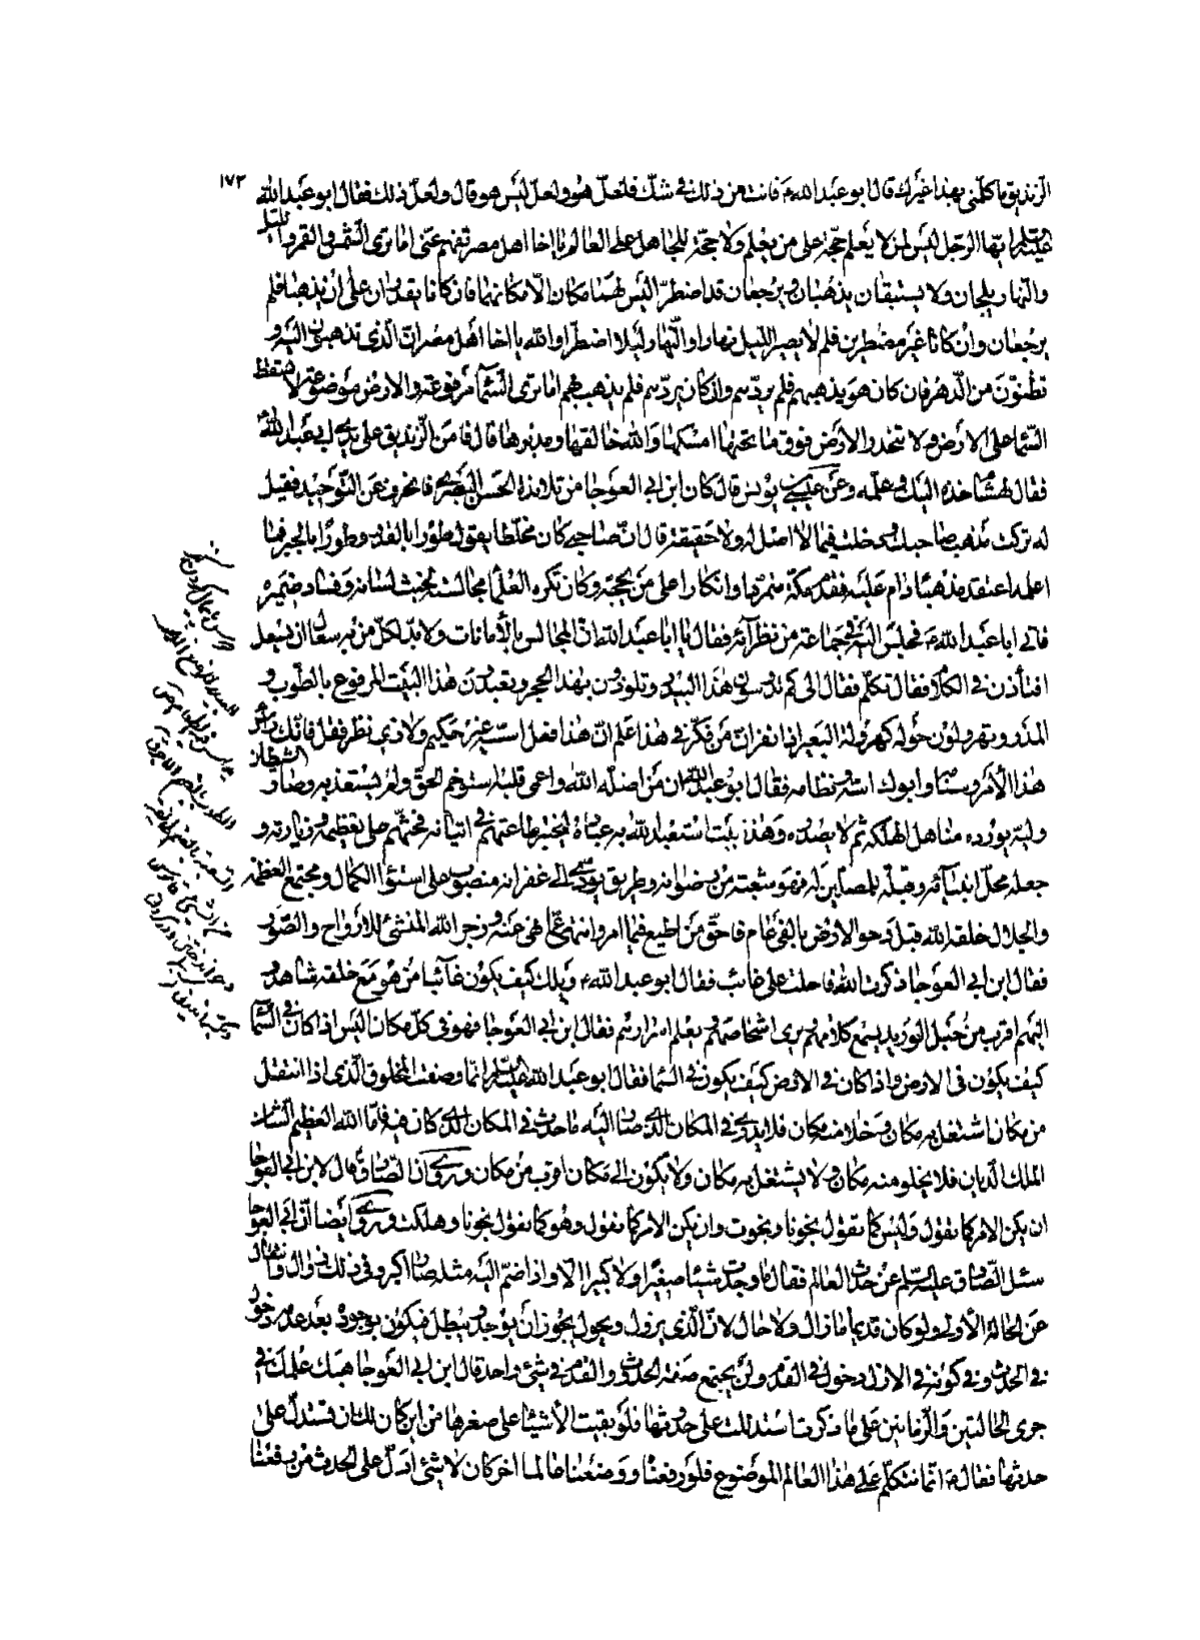 ١٧٢
الزنديق ما كلمني بهذا غيرك قال ابو عبد الله ع فانت من ذلك في شك فلعل هو ولعل ليس هو قال ولعل ذلك فقال ابو عبد الله
عليه السلم ايها الرجل ليس لمن لا يعلم حجة على من يعلم ولا حجة للجاهل على العالم يا اخا اهل مصر تفهم عني اما ترى الشمس والقمر والليل
والنهار يلجان ولا يستبقان يذهبان ويرجعان قد اضطرا ليس لهما مكان الا مكانهما فان كانا يقدران على أن يذهبا فلم
يرجعان وان كانا غير مضطرين فلم لا يصير الليل نهارا والنهار ليلا اضطرا والله يا اخا اهل مصر ان الذي تذهبون اليه و
تظنون من الدهر فان كان هو يذهبهم فلم يردهم وان كان يردهم فلم يذهب بهم اما ترى السماء مرفوعة والارض موضوعة لا تسقط
السماء على الارض ولا تنحدر الارض فوق ما تحتها امسكها والله خالقها ومدبرها قال فامن الزنديق على يدي ابي عبد الله
فقال لهشام خذه اليك وعلمه وعن عيسى بن يونس قال كان ابن ابي العوجا من تلامذة الحسن البصري فانحرف عن التوحيد فقيل
له تركت مذهب صاحبك ودخلت فيما لا اصل له ولا حقيقة قال ان صاحبي كان مخلطا يقول طورا بالقدر وطورا بالجبر فما
اعلمه اعتقد مذهبا دام عليه فقدم مكة متمردا وانكارا على من يحجه وكان تكره العلما مجالسته لخبث لسانه وفساد ضميره
فاتى ابا عبد الله ع فجلس اليه في جماعة من نظرائه فقال يا ابا عبد الله ان المجالس بالأمانات ولا بد لكل من به سعال ان يسعل
افتأذن في الكلام فقال تكلم فقال الى كم تدوسون هذا البيدر وتلوذون بهذا الحجر وتعبدون هذا البيت المرفوع بالطوب و
المدر وتهرولون حوله كهرولة البعير اذا نفر ان من فكر في هذا علم ان هذا فعل اسسه غير حكيم ولا ذي نظر فقل فانك رأس
هذا الأمر وسنامه وابوك اسه ونظامه فقال ابو عبد الله ان من اضله الله واعمى قلبه استوخم الحق ولم يستعذبه وصار الشيطان
وليه يورده مناهل الهلكة ثم لا يصدره وهذا بيت استعبد الله به عباده ليختبر طاعتهم في اتيانه فحثهم على تعظيمه وزيارته و
جعله محل انبيائه وقبلة للمصلين له فهو شعبة من رضوانه وطريق يؤدي الى غفرانه منصوب على استواء الكمال ومجتمع العظمة
والجلال خلقه الله قبل دحو الارض بالفي عام فاحق من اطيع فيما امر وانتهي عما نهى عنه وزجر الله المنشئ للارواح والصور
فقال ابن ابي العوجا ذكرت الله فاحلت على غائب فقال ابو عبد الله ع ويلك كيف يكون غائبا من هو مع خلقه شاهد و
اليهم اقرب من حبل الوريد يسمع كلامهم ويرى اشخاصهم ويعلم اسرارهم فقال ابن ابي العوجا فهو في كل مكان اليس اذا كان في السماء
كيف يكون في الارض واذا كان في الارض كيف يكون في السماء فقال ابو عبد الله عليه السلم انما وصفت المخلوق الذي اذا انتقل
من مكان اشتغل به مكان وخلا منه مكان فلا يدري في المكان الذي صار اليه ما حدث في المكان الذي كان فيه فاما الله العظيم الشان
الملك الديان فلا يخلو منه مكان ولا يشتغل به مكان ولا يكون الى مكان اقرب من مكان وروي ان الصادق ع قال لابن ابي العوجا
ان يكن الامر كما تقول وليس كما تقول نجونا ونجوت وان يكن الامر كما نقول وهو كما نقول نجونا وهلكت وروي ايضا ان ابن ابي العوجا
سئل الصادق عليه السلم عن حدث العالم فقال ما وجدت شيئا صغيرا ولا كبيرا الا واذا ضم اليه مثله صار اكبر وفي ذلك زوال وانتقال
عن الحالة الأولى ولو كان قديما ما زال ولا حال لان الذي يزول ويحول يجوز ان يوجد ويبطل فيكون بوجوده بعد عدمه دخول
في الحدث وفي كونه في الازل دخول في القدم ولن يجتمع صفة الحدوث والقدم في شئ واحد قال ابن ابي العوجا هبك علمك في
جري الحالتين والزمانين على ما ذكرت استدللت على حدوثها فلو بقيت الأشياء على صغرها من اين كان لك ان تستدل على
حدثها فقال ع انما نتكلم على هذا العالم الموضوع فلو رفعناه ووضعنا عالما اخر كان لا شئ ادل على الحدث من رفعنا